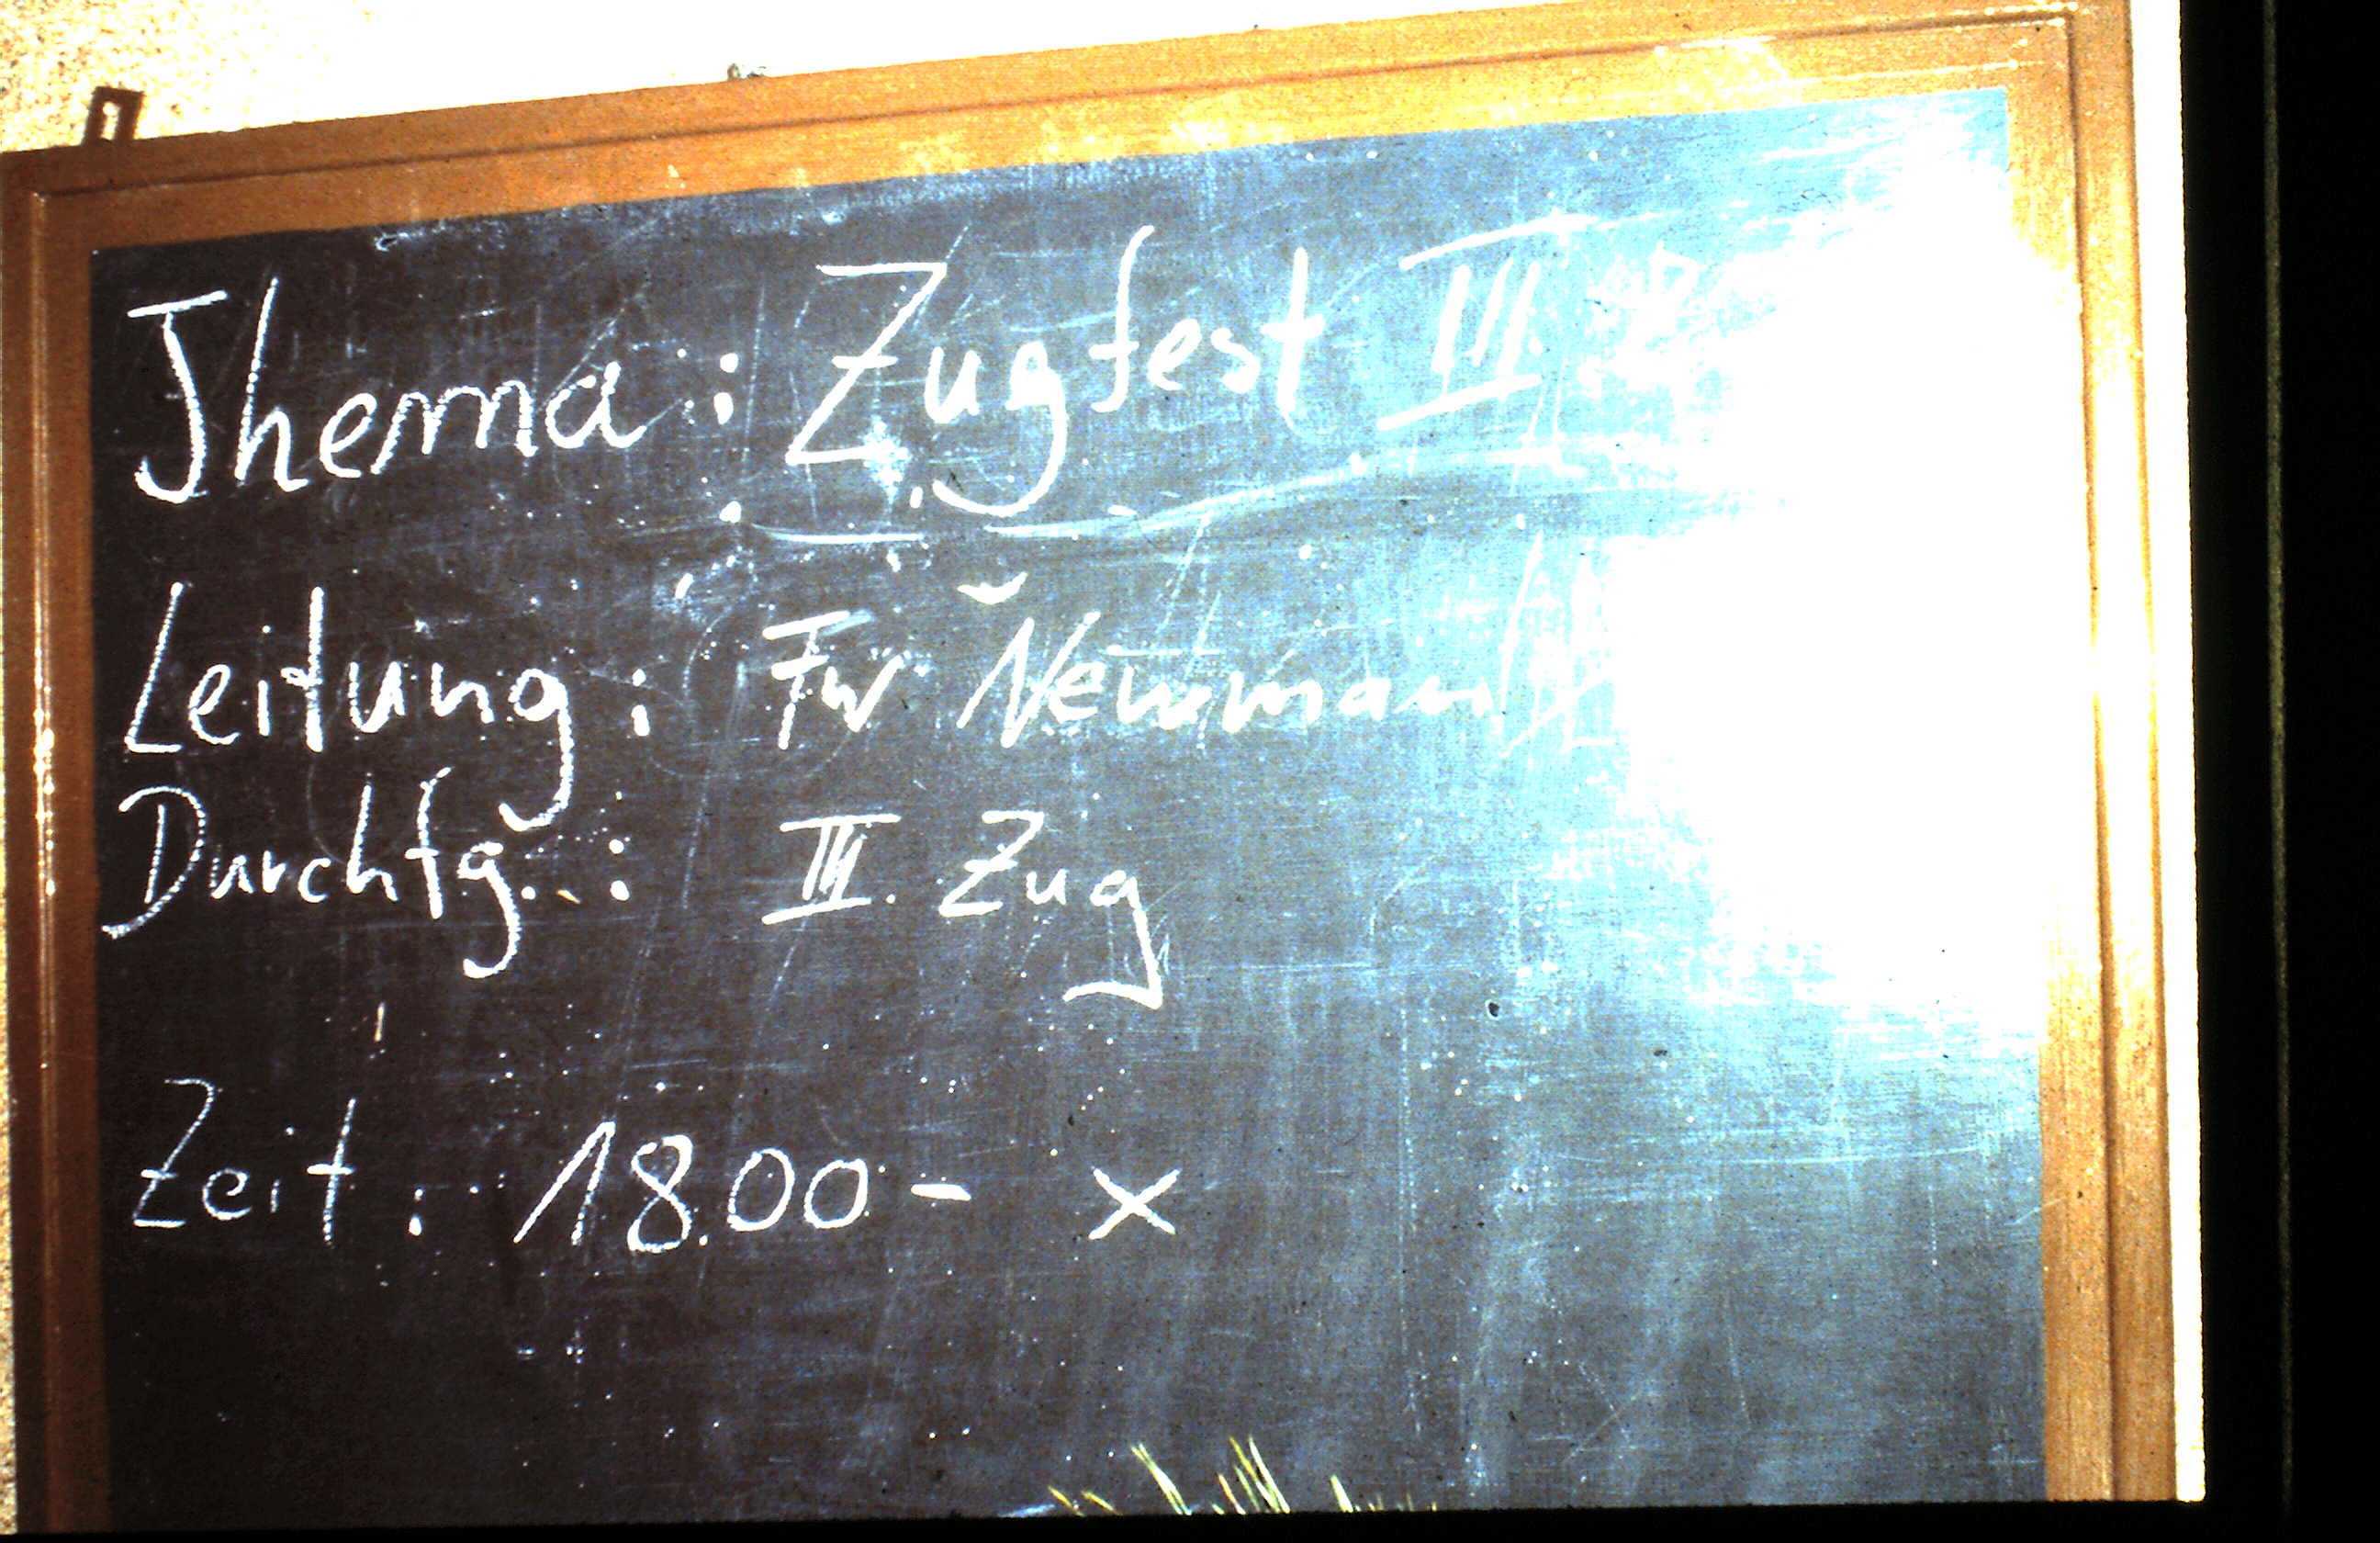 Thema: Zugfest III.
Leitung: Fw Neumann
Durchfg.: III. Zug
Zeit: 18.00 - x